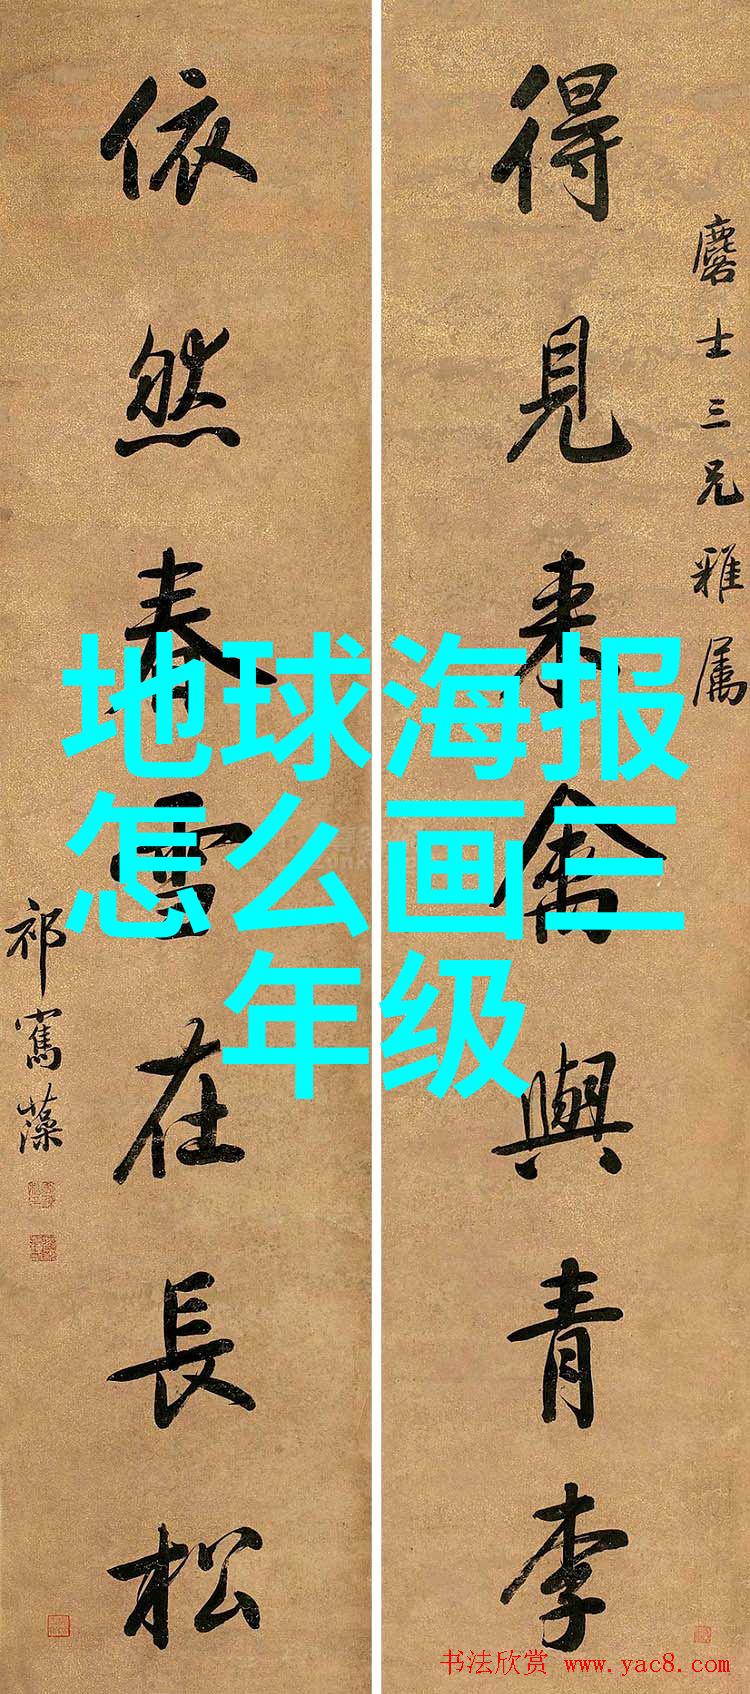 得見来禽與青李
麐士三兄雅属
依然春雪在長松
祁寯藻
地球海报
怎么画三
年级
书法欣赏 www.yac8.com